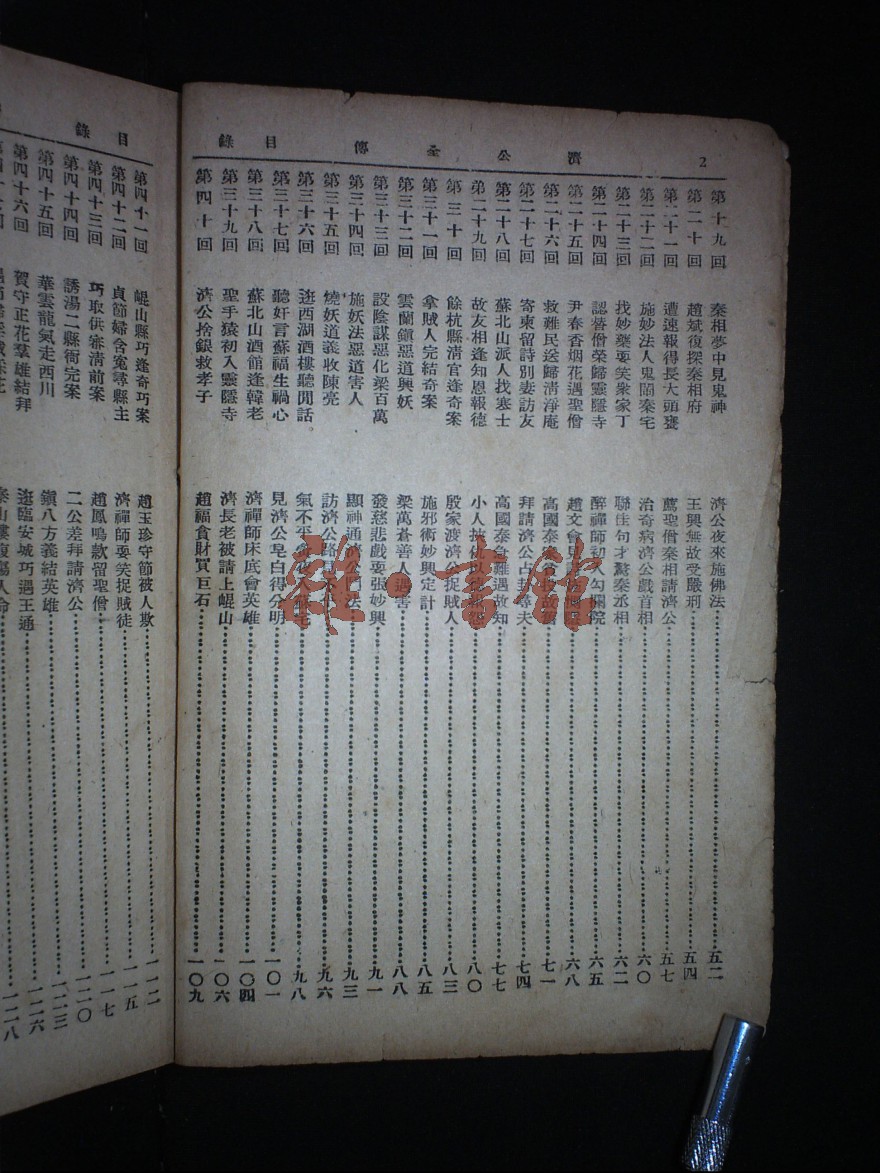 2 濟公全傳 目錄
第十九回 秦相夢中見鬼神 濟公夜來施佛法 五二
第二十回 趙斌復探秦相府 王興無故受嚴刑 五四
第二十一回 遭速報得長大頭甕 薦聖僧秦相請濟公 五七
第二十二回 施妙法人鬼鬧秦宅 治奇病濟公戲首相 六〇
第二十三回 找妙藥耍笑衆家丁 聯佳句才驚秦丞相 六二
第二十四回 認替僧榮歸靈隱寺 醉禪師初入勾欄院 六五
第二十五回 尹春香烟花遇聖僧 趙文會 六八
第二十六回 救難民送歸清淨庵 高國泰 七一
第二十七回 寄柬留詩別妻訪友 拜請濟公占卦尋夫 七四
第二十八回 蘇北山派人找寒士 高國泰急難遇故知 七七
第二十九回 故友相逢知恩報德 小人挾仇以 八〇
第三十回 餘杭縣清官逢奇案 殷家渡濟公捉賊人 八三
第三十一回 拿賊人完結奇案 施邪術妙興定計 八五
第三十二回 雲蘭鎭惡道興妖 梁萬蒼善人遇害 八八
第三十三回 設陰謀惡化梁百萬 發慈悲戲耍張妙興 九一
第三十四回 施妖法惡道害人 顯神通濟公鬥法 九三
第三十五回 燒妖道義收陳亮 訪濟公路見不 九六
第三十六回 逛西湖酒樓聽閒話 氣不平 九八
第三十七回 聽奸言蘇福生禍心 見濟公皂白得分明 一〇一
第三十八回 蘇北山酒館逢韓老 濟禪師床底會英雄 一〇四
第三十九回 聖手猿初入靈隱寺 濟長老被請上崐山 一〇六
第四十回 濟公捨銀救孝子 趙福貪財買巨石 一〇九
目錄
第四十一回 崐山縣巧逢奇巧案 趙玉珍守節被人欺 一一二
第四十二回 貞節婦含寃尋縣主 濟禪師耍笑捉賊徒 一一五
第四十三回 巧取供審清前案 趙鳳鳴款留聖僧 一一七
第四十四回 誘湯二縣衙完案 二公差拜請濟公 一二〇
第四十五回 華雲龍氣走西川 鎭八方義結英雄 一二三
第四十六回 賀守正花羣雄結拜 逛臨安城巧遇王通 一二六
一二八